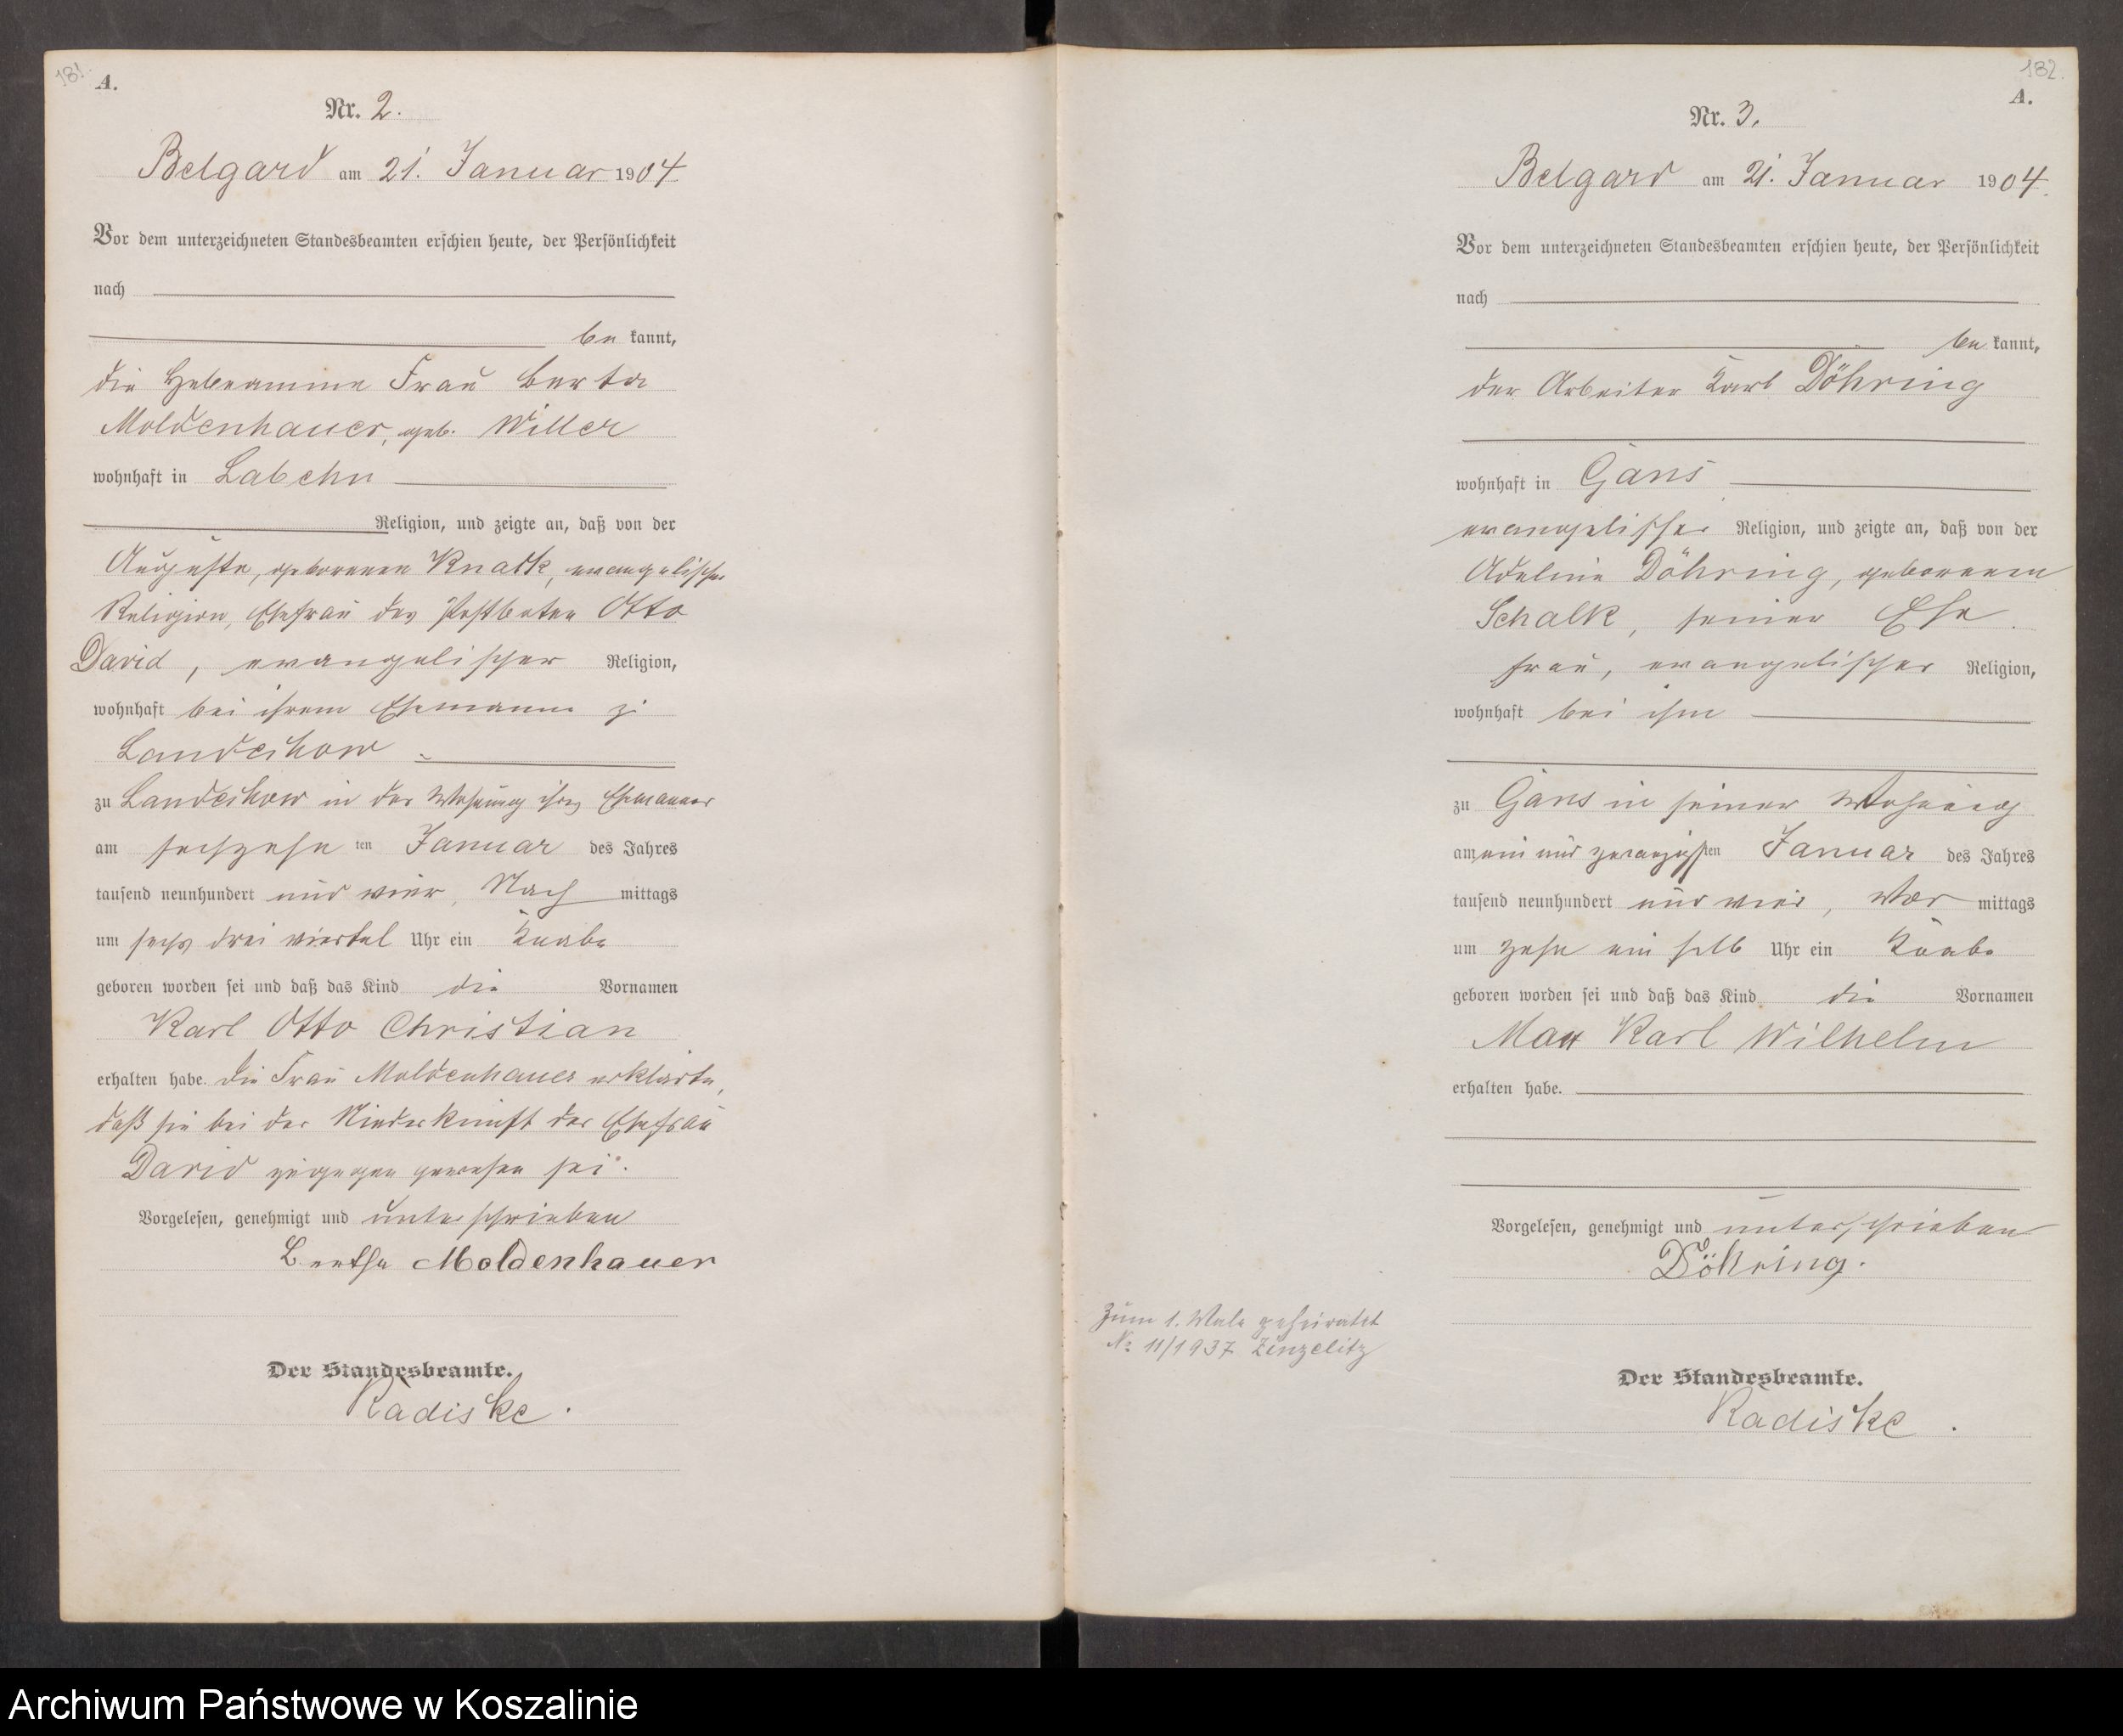 181.
A.
Nr. 2.
Belgard am 21. Januar 1904
Vor dem unterzeichneten Standesbeamten erschien heute, der Persönlichkeit
nach
be kannt,
die Hebeamme Frau Berta
Moldenhauer, geb. Willer
wohnhaft in Labehn
Religion, und zeigte an, daß von der
Auguste, geborenen Knack, evangelischer
Religion, Ehefrau des Postboten Otto
David, evangelischer Religion,
wohnhaft bei ihrem Ehemanne zu
Landechow
zu Landechow in der Wohnung ihres Ehemannes
am sechzehn ten Januar des Jahres
tausend neunhundert und vier, Nach mittags
um sechs drei viertel Uhr ein Knabe
geboren worden sei und daß das Kind die Vornamen
Karl Otto Christian
erhalten habe. Die Frau Moldenhauer erklärte,
daß sie bei der Niederkunft der Ehefrau
David zugegen gewesen sei.
Vorgelesen, genehmigt und unterschrieben
Bertha Moldenhauer
Der Standesbeamte.
Radiske.
182.
A.
Nr. 3.
Belgard am 21. Januar 1904.
Vor dem unterzeichneten Standesbeamten erschien heute, der Persönlichkeit
nach
be kannt,
der Arbeiter Karl Döhring
wohnhaft in Gans
evangelischer Religion, und zeigte an, daß von der
Adeline Döhring, geborenen
Schalk, seiner Ehe
frau, evangelischer Religion,
wohnhaft bei ihm
zu Gans in seiner Wohnung
am ein und zwanzigsten Januar des Jahres
tausend neunhundert und vier, Vor mittags
um zehn ein halb Uhr ein Knabe
geboren worden sei und daß das Kind die Vornamen
Max Karl Wilhelm
erhalten habe.
Vorgelesen, genehmigt und unterschrieben
Döhring.
Zum 1. Male geheiratet
No 11/1937 Zinzelitz
Der Standesbeamte.
Radiske.
Archiwum Państwowe w Koszalinie